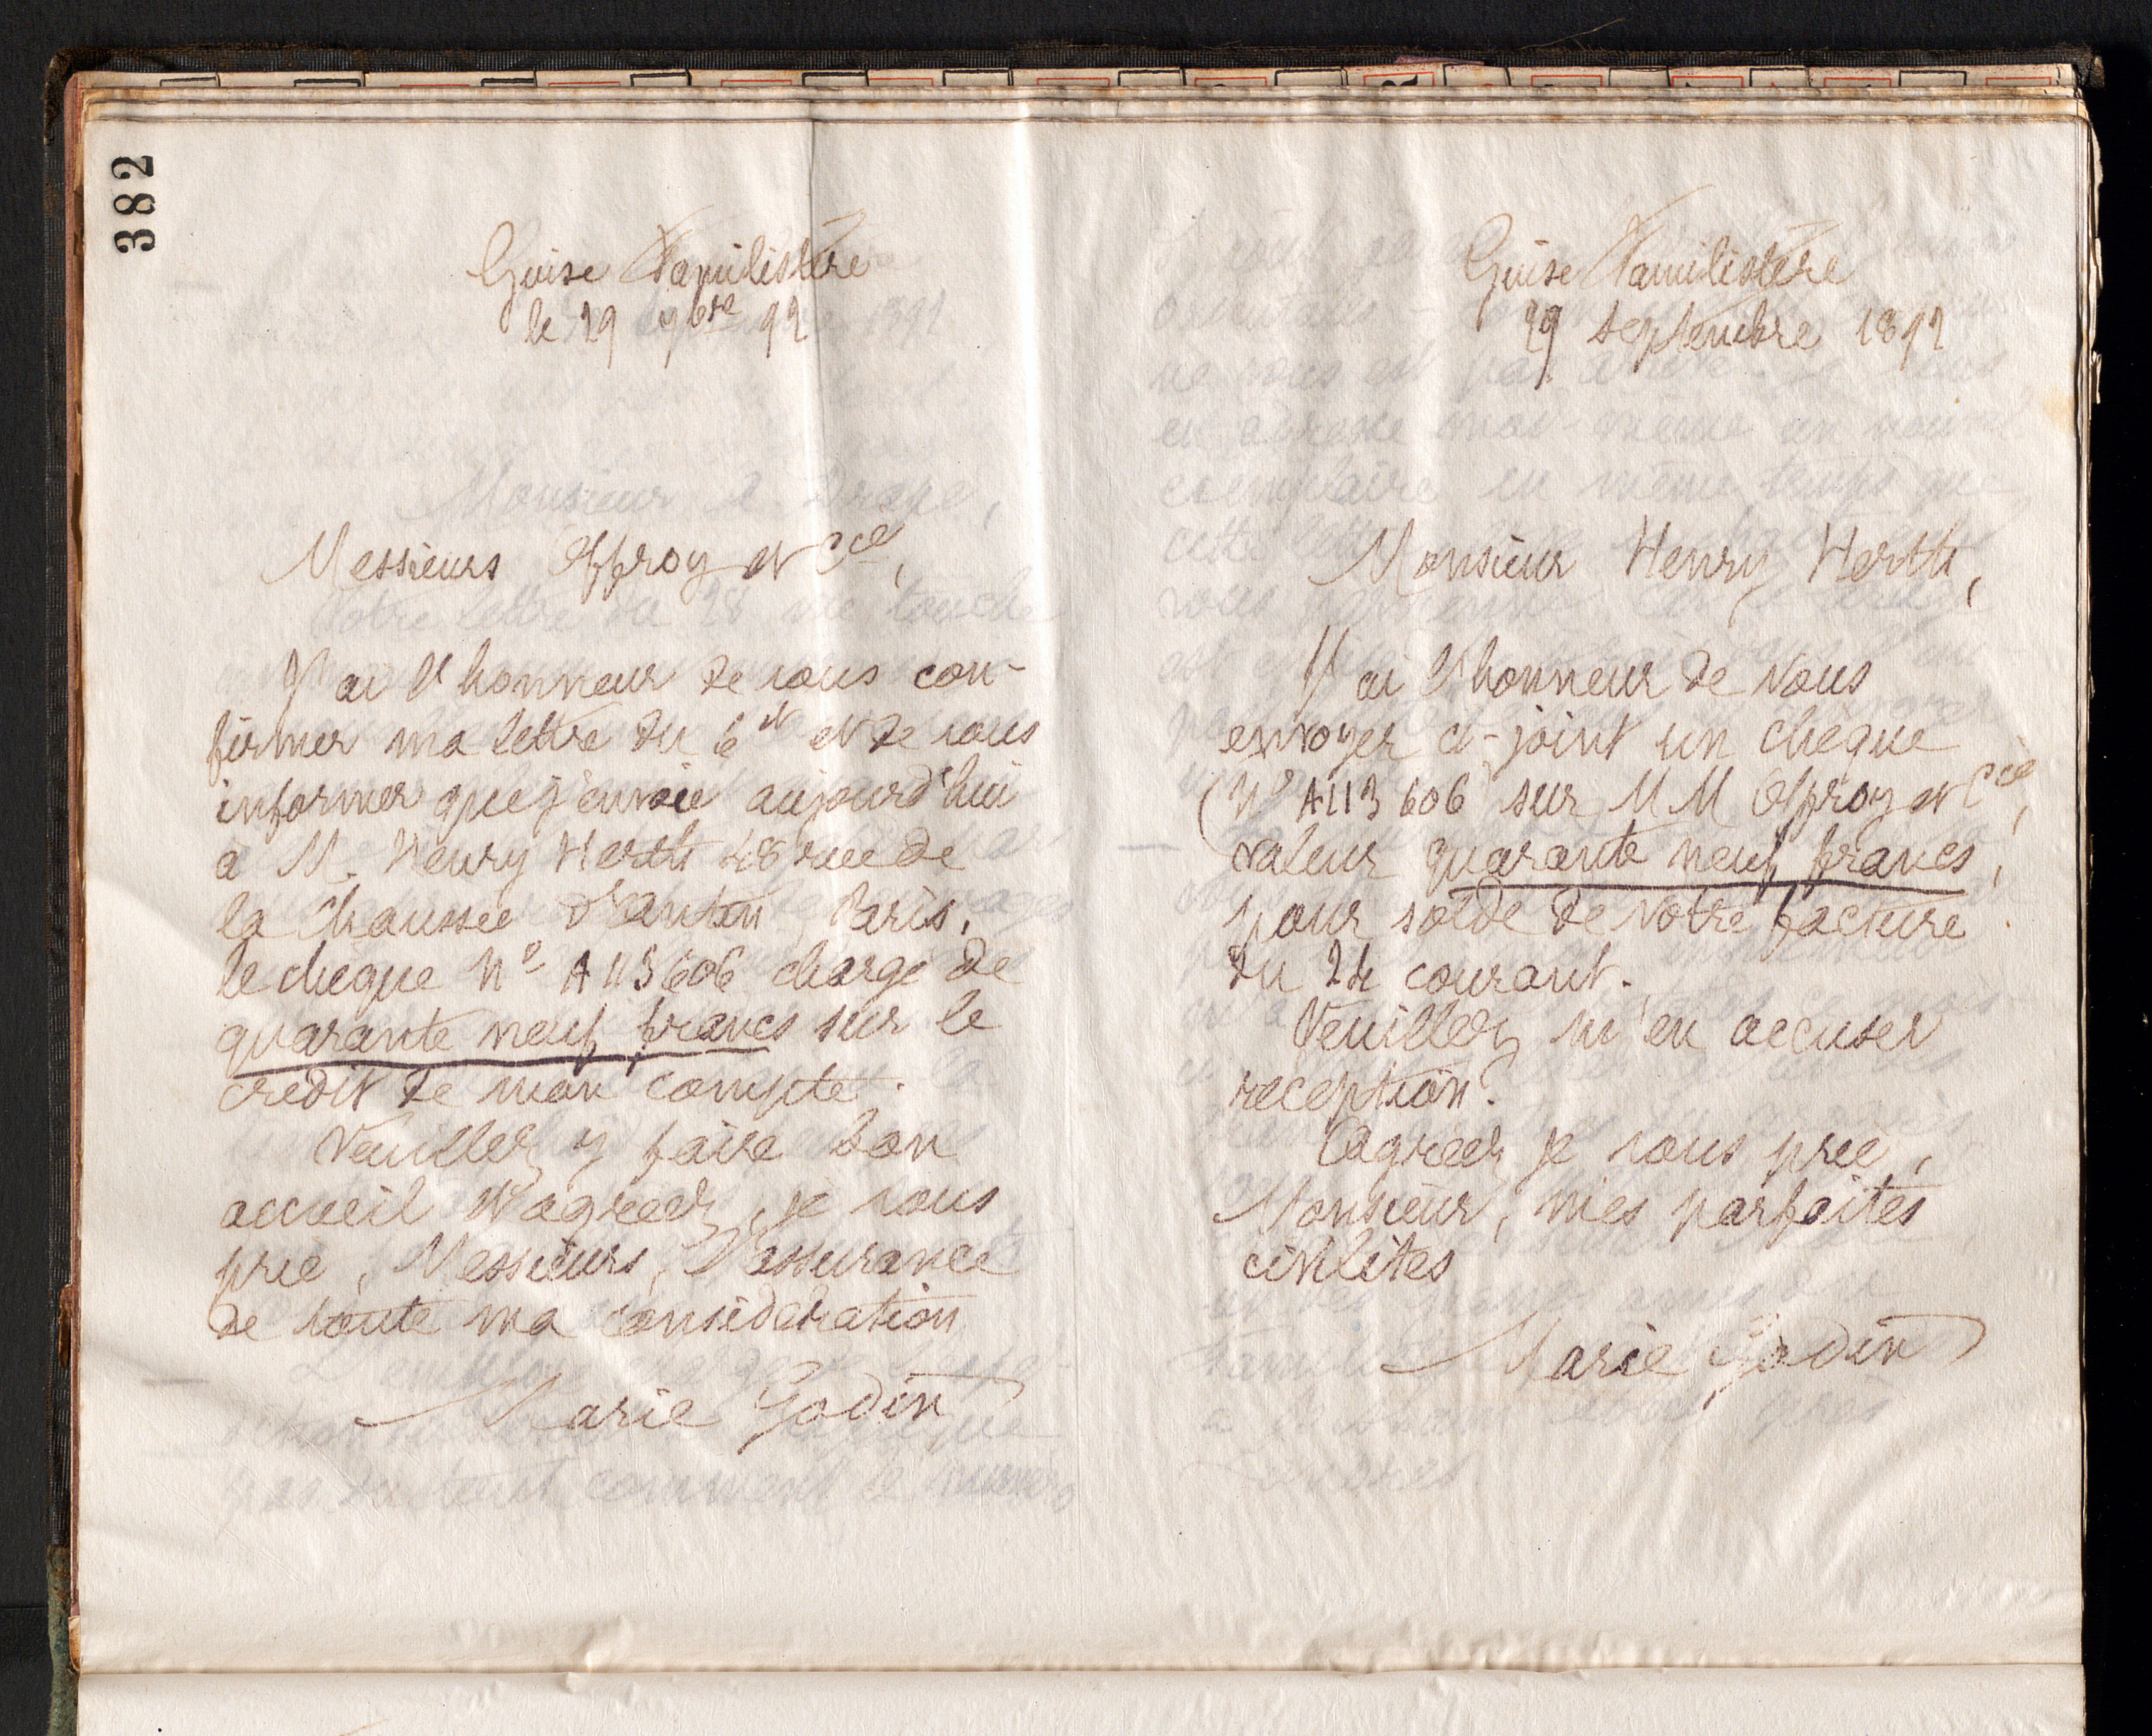 382
Guise Familistère
le 29 7bre 92
Messieurs Offroy et Cie,
J'ai l'honneur de vous con-
firmer ma lettre du 6 ct et de vous
informer que j'envoie aujourd'hui
à M. Henry Herth 48 rue de
la Chaussée d'Antin, Paris,
le chèque No A113606 chargé de
quarante neuf francs sur le
crédit de mon compte.
Veuillez y faire bon
accueil et agréer, je vous
prie, Messieurs, l'assurance
de toute ma considération
Marie Godin
Guise Familistère
29 septembre 1892
Monsieur Henry Herth,
J'ai l'honneur de vous
envoyer ci-joint un chèque
(No A113606 sur MM Offroy et Cie,
valeur quarante neuf francs,
pour solde de votre facture
du 24 courant.
Veuillez m'en accuser
réception.
Agréez je vous prie,
Monsieur, mes parfaites
civilités
Marie Godin